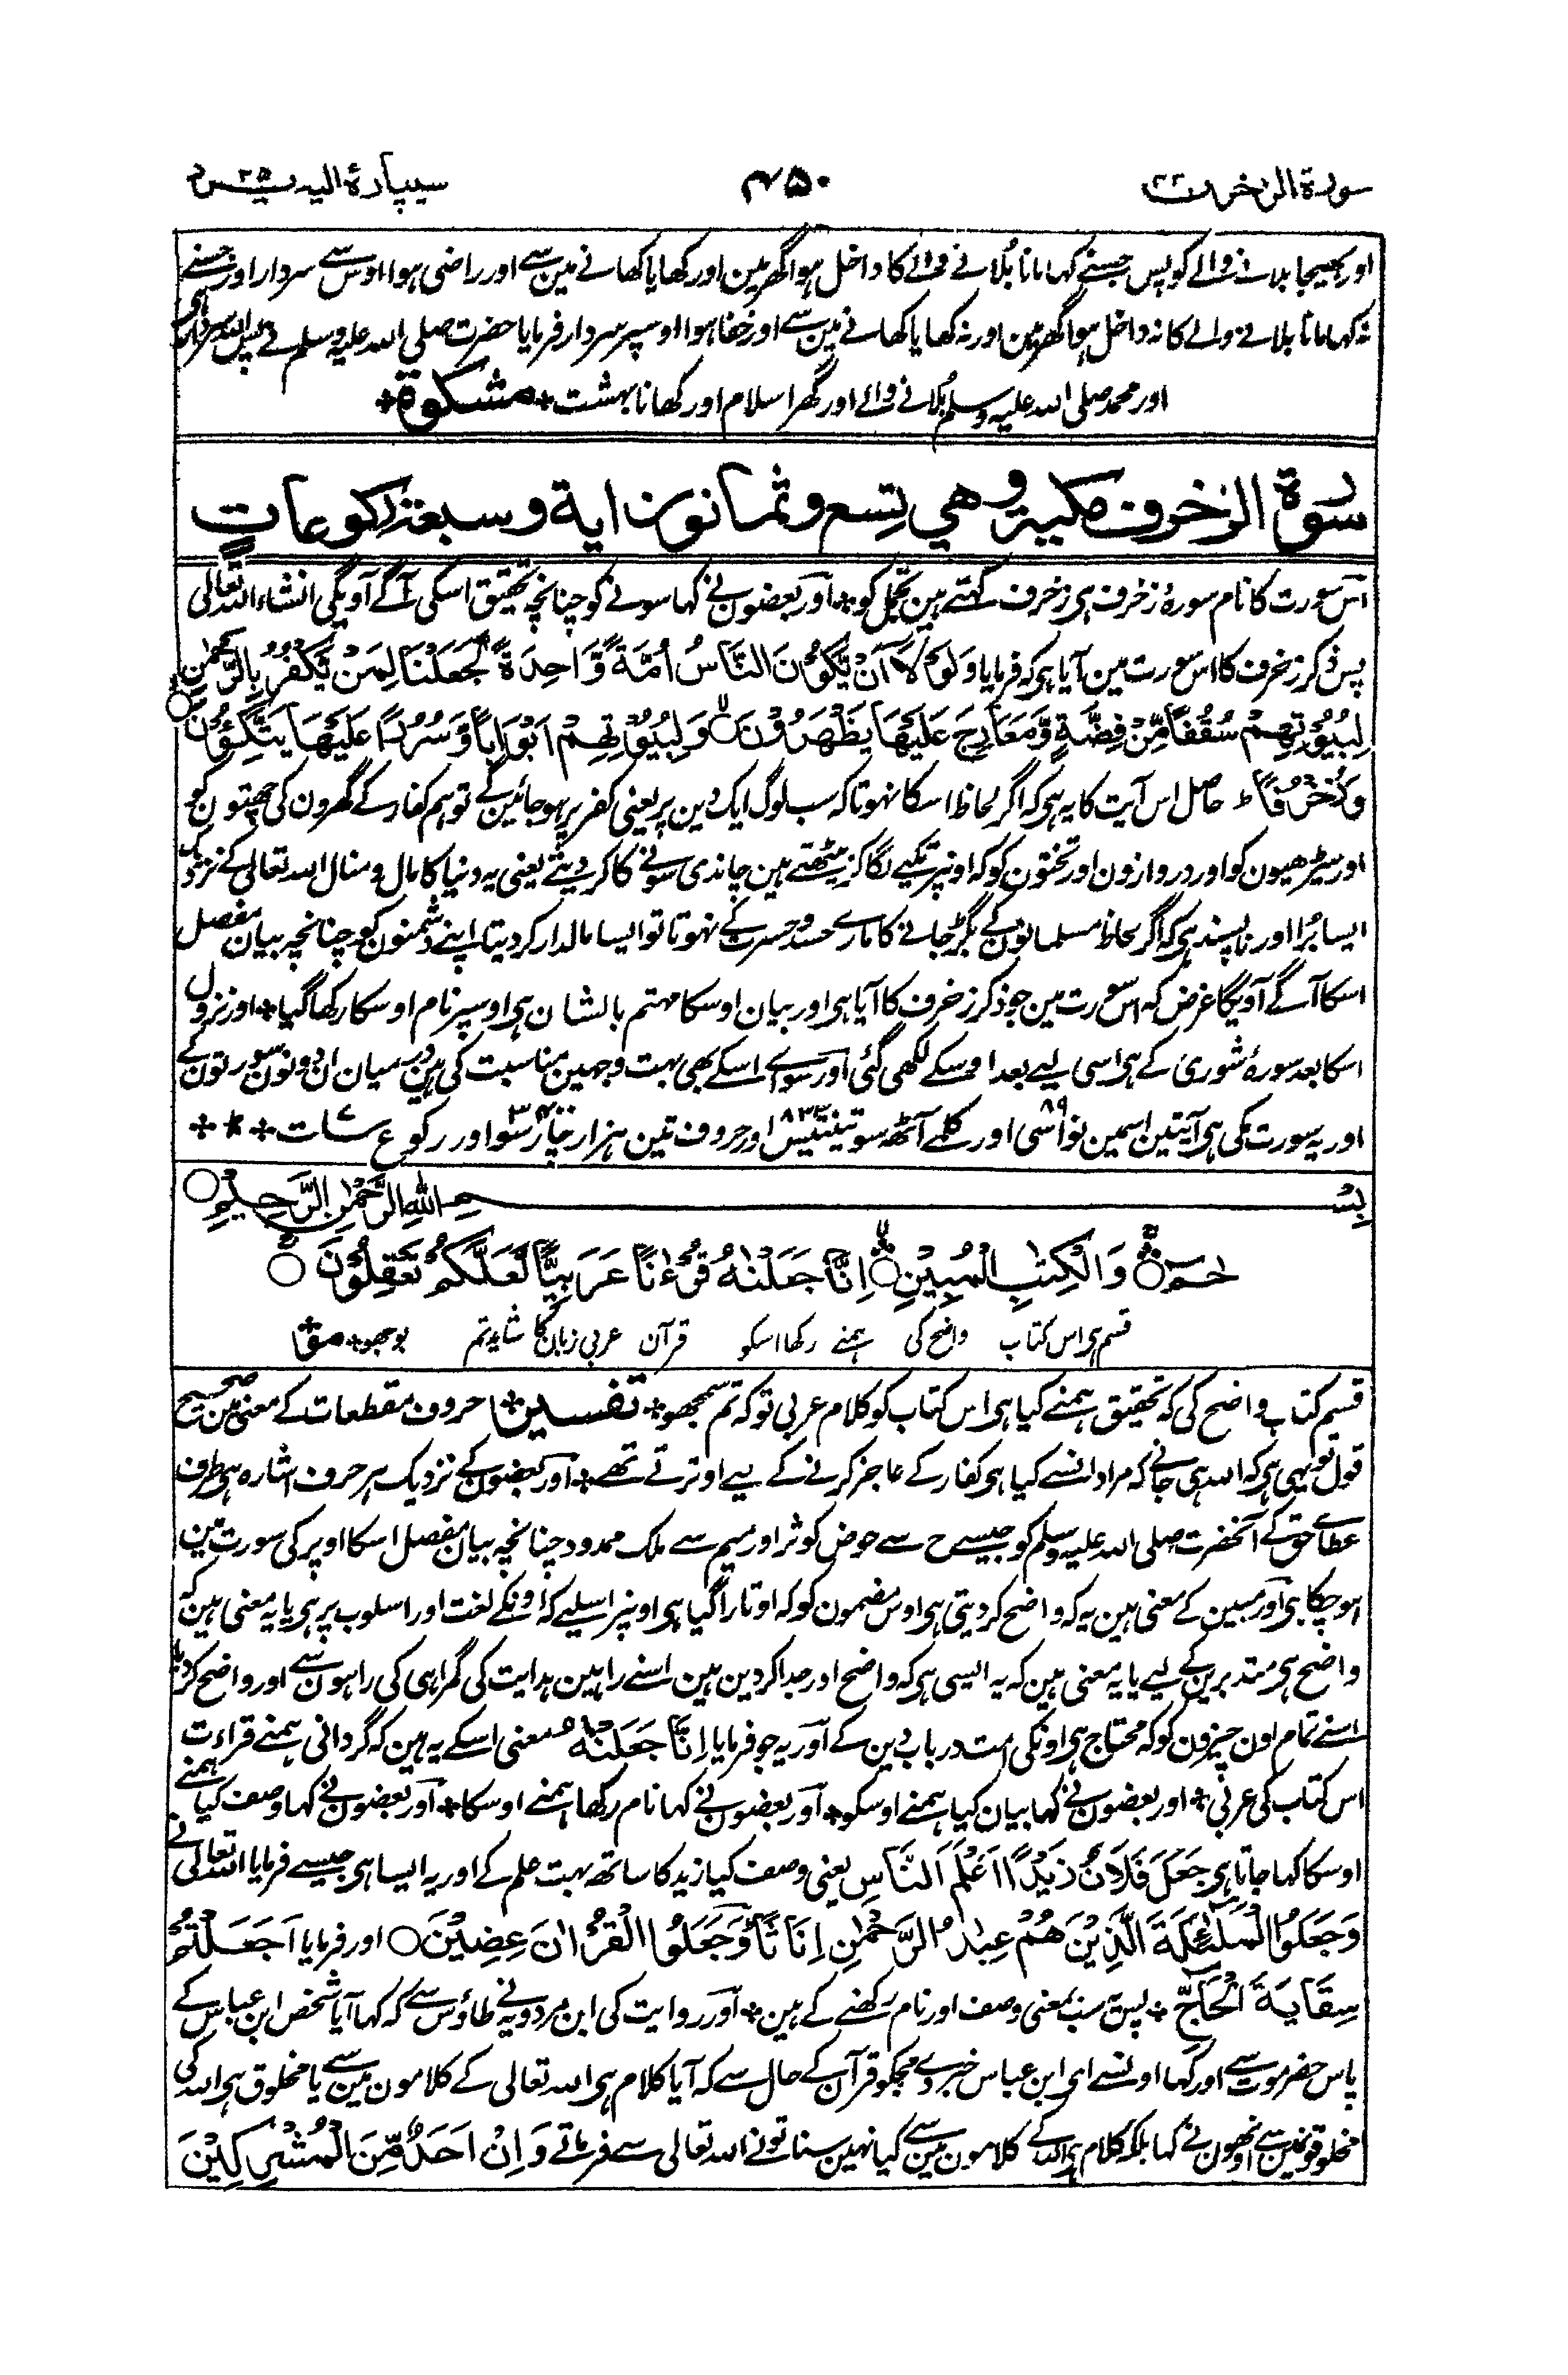 سورة الزخرف ۴۳
۴۵۰
سیپارۂ الیہ یرد ۲۵
اور بھیجا بلانے والے کو پس جسنے کہا مانا بُلانے والے کا داخل ہوا گھر مین اور کھایا کھانے مین سے اور راضی ہوا اوس سے سردار اور جسنے
نہ کہا مانا بلانے والے کا نہ داخل ہوا گھر مین اور نہ کھایا کھانے مین سے اور خفا ہوا اوسپر سردار فرمایا حضرت صلی اللہ علیہ وسلم نے پس اللہ سردار ہی
اور محمد صلی اللہ علیہ وسلم بُلانے والے اور گھر اسلام اور کھانا بہشت * مشکوة *
سورة الزخرف مكية وهي تسع وثمانون اية وسبعة ركوعات
اس سورت کا نام سورۂ زخرف ہی زخرف کہتے ہین تجمل کو * اور بعضون نے کہا سونے کو چنانچہ تحقیق اسکی آگے آویگی انشاء اللہ تعالی
پس ذکر زخرف کا اس سورت مین آیا ہی کہ فرمایا وَلَوْ لَآ اَنْ يَّكُوْنَ النَّاسُ اُمَّةً وَّاحِدَةً لَّجَعَلْنَا لِمَنْ يَّكْفُرُ بِالرَّحْمٰنِ
لِبُيُوْتِهِمْ سُقُفًا مِّنْ فِضَّةٍ وَّمَعَارِجَ عَلَيْهَا يَظْهَرُوْنَ وَلِبُيُوْتِهِمْ اَبْوَابًا وَّسُرُرًا عَلَيْهَا يَتَّكِئُوْنَ
وَزُخْرُفًا ط حاصل اس آیت کا یہ ہی کہ اگر لحاظ اسکا نہوتا کہ سب لوگ ایک دین پر یعنی کفر پر ہو جائین گے تو ہم کفار کے گھرون کی چھتون کو
اور سیڑھیون کو اور دروازون اور تختون کو کہ اونپر تکیے لگا کر بیٹھتے ہین چاندی سونے کا کر دیتے یعنی یہ دنیا کا مال و منال اللہ تعالی کے نزدیک
ایسا بُرا اور ناپسند ہی کہ اگر لحاظ مسلمانون کے بگڑ جانے کا مارے حسد و حسرت کے نہوتا تو ایسا مالدار کر دیتا اپنے دشمنون کو چنانچہ بیان مفصل
اسکا آگے آویگا غرض کہ اس سورت مین جو ذکر زخرف کا آیا ہی اور بیان اوسکا مہتم بالشان ہی اوسپر نام اوسکا رکھا گیا * اور نزول
اسکا بعد سورۂ شوری کے ہی اسی لیے بعد اوسکے لکھی گئی اور سواے اسکے بھی بہت وجہین مناسبت کی ہین درمیان ان دونون سورتون کے
اور یہ سورت مکی ہی آیتین اسمین نواسی ۸۹ اور کلمے آٹھ سو تینتیس ۸۳۳ اور حروف تین ہزار چار سو ۳۴۰۰ اور رکوع سات ۷ * * *
بِسْمِ اللّٰهِ الرَّحْمٰنِ الرَّحِيْمِ
حٰمٓ وَالْكِتٰبِ الْمُبِيْنِ اِنَّا جَعَلْنٰهُ قُرْءٰنًا عَرَبِيًّا لَّعَلَّكُمْ تَعْقِلُوْنَ
قسم ہی اس کتاب واضح کی ہمنے رکھا اسکو قرآن عربی زبان کا شاید تم بوجھو *
قسم کتاب واضح کی کہ تحقیق ہمنے کیا ہی اس کتاب کو کلام عربی تو کہ تم سمجھو * تفسیر * حروف مقطعات کے معنی مین صحیح
قول تو یہی ہی کہ اللہ ہی جانے کہ مراد انسے کیا ہی کفار کے عاجز کرنے کے لیے اوترتے تھے * اور بعضون کے نزدیک ہر حرف اشارہ ہی طرف
عطاے حق کے آنحضرت صلی اللہ علیہ وسلم کو جیسے ح سے حوض کوثر اور میم سے ملک ممدود چنانچہ بیان مفصل اسکا اوپر کی سورت مین
ہو چکا ہی اور مبین کے معنی ہین یہ کہ واضح کر دیتی ہی اوس مضمون کو کہ اوتارا گیا ہی اونپر اسلیے کہ اونکے لغت اور اسلوب پر ہی یا یہ معنی ہین کہ
واضح ہی متدبرین کے لیے یا یہ معنی ہین کہ یہ ایسی ہی کہ واضح اور جدا کر دین ہین اسنے راہین ہدایت کی گمراہی کی راہون سے اور واضح کر دیا
اسنے تمام اون چیزون کو کہ محتاج ہی اونکی امت درباب دین کے اور یہ جو فرمایا اِنَّا جَعَلْنٰهُ معنی اسکے یہ ہین کہ گردانی ہمنے قراءت
اس کتاب کی عربی * اور بعضون نے کہا بیان کیا ہمنے اوسکو * اور بعضون نے کہا نام رکھا ہمنے اوسکا * اور بعضون نے کہا وصف کیا ہمنے
اوسکا کہا جاتا ہی جَعَلَ فَلَانٌ زَيْدًا اَعْلَمَ النَّاسِ یعنی وصف کیا زید کا ساتھ بہت علم کے اور یہ ایسا ہی جیسے فرمایا اللہ تعالی نے
وَجَعَلُوا الْمَلٰٓئِكَةَ الَّذِيْنَ هُمْ عِبٰدُ الرَّحْمٰنِ اِنَاثًا وَجَعَلُوا الْقُرْاٰنَ عِضِيْنَ اور فرمایا اَجَعَلْتُمْ
سِقَايَةَ الْحَآجِّ * پس یہ سب بمعنی وصف اور نام رکھنے کے ہین * اور روایت کی ابن مردویہ نے طاؤس سے کہ کہا آیا شخص ابن عباس کے
پاس حضرموت سے اور کہا اونسے ای ابن عباس خبر دے مجکو قرآن کے حال سے کہ آیا کلام ہی اللہ تعالی کے کلامون مین سے یا مخلوق ہی اللہ کی
مخلوقون مین سے اونھون نے کہا بلکہ کلام ہی اللہ کے کلامون مین سے کیا نہین سنا تونے اللہ تعالی سے فرماتے وَاِنْ اَحَدٌ مِّنَ الْمُشْرِكِيْنَ